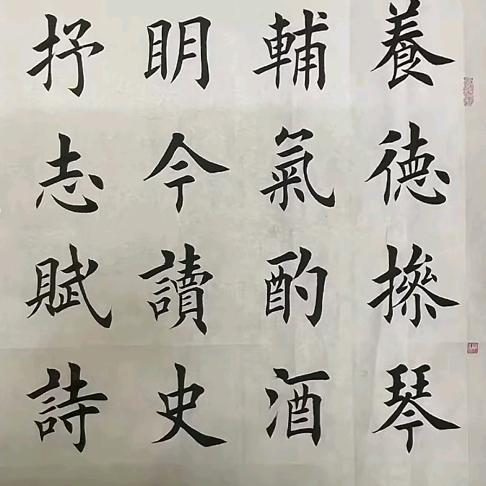 養德操琴
輔氣酌酒
明今讀史
抒志賦詩